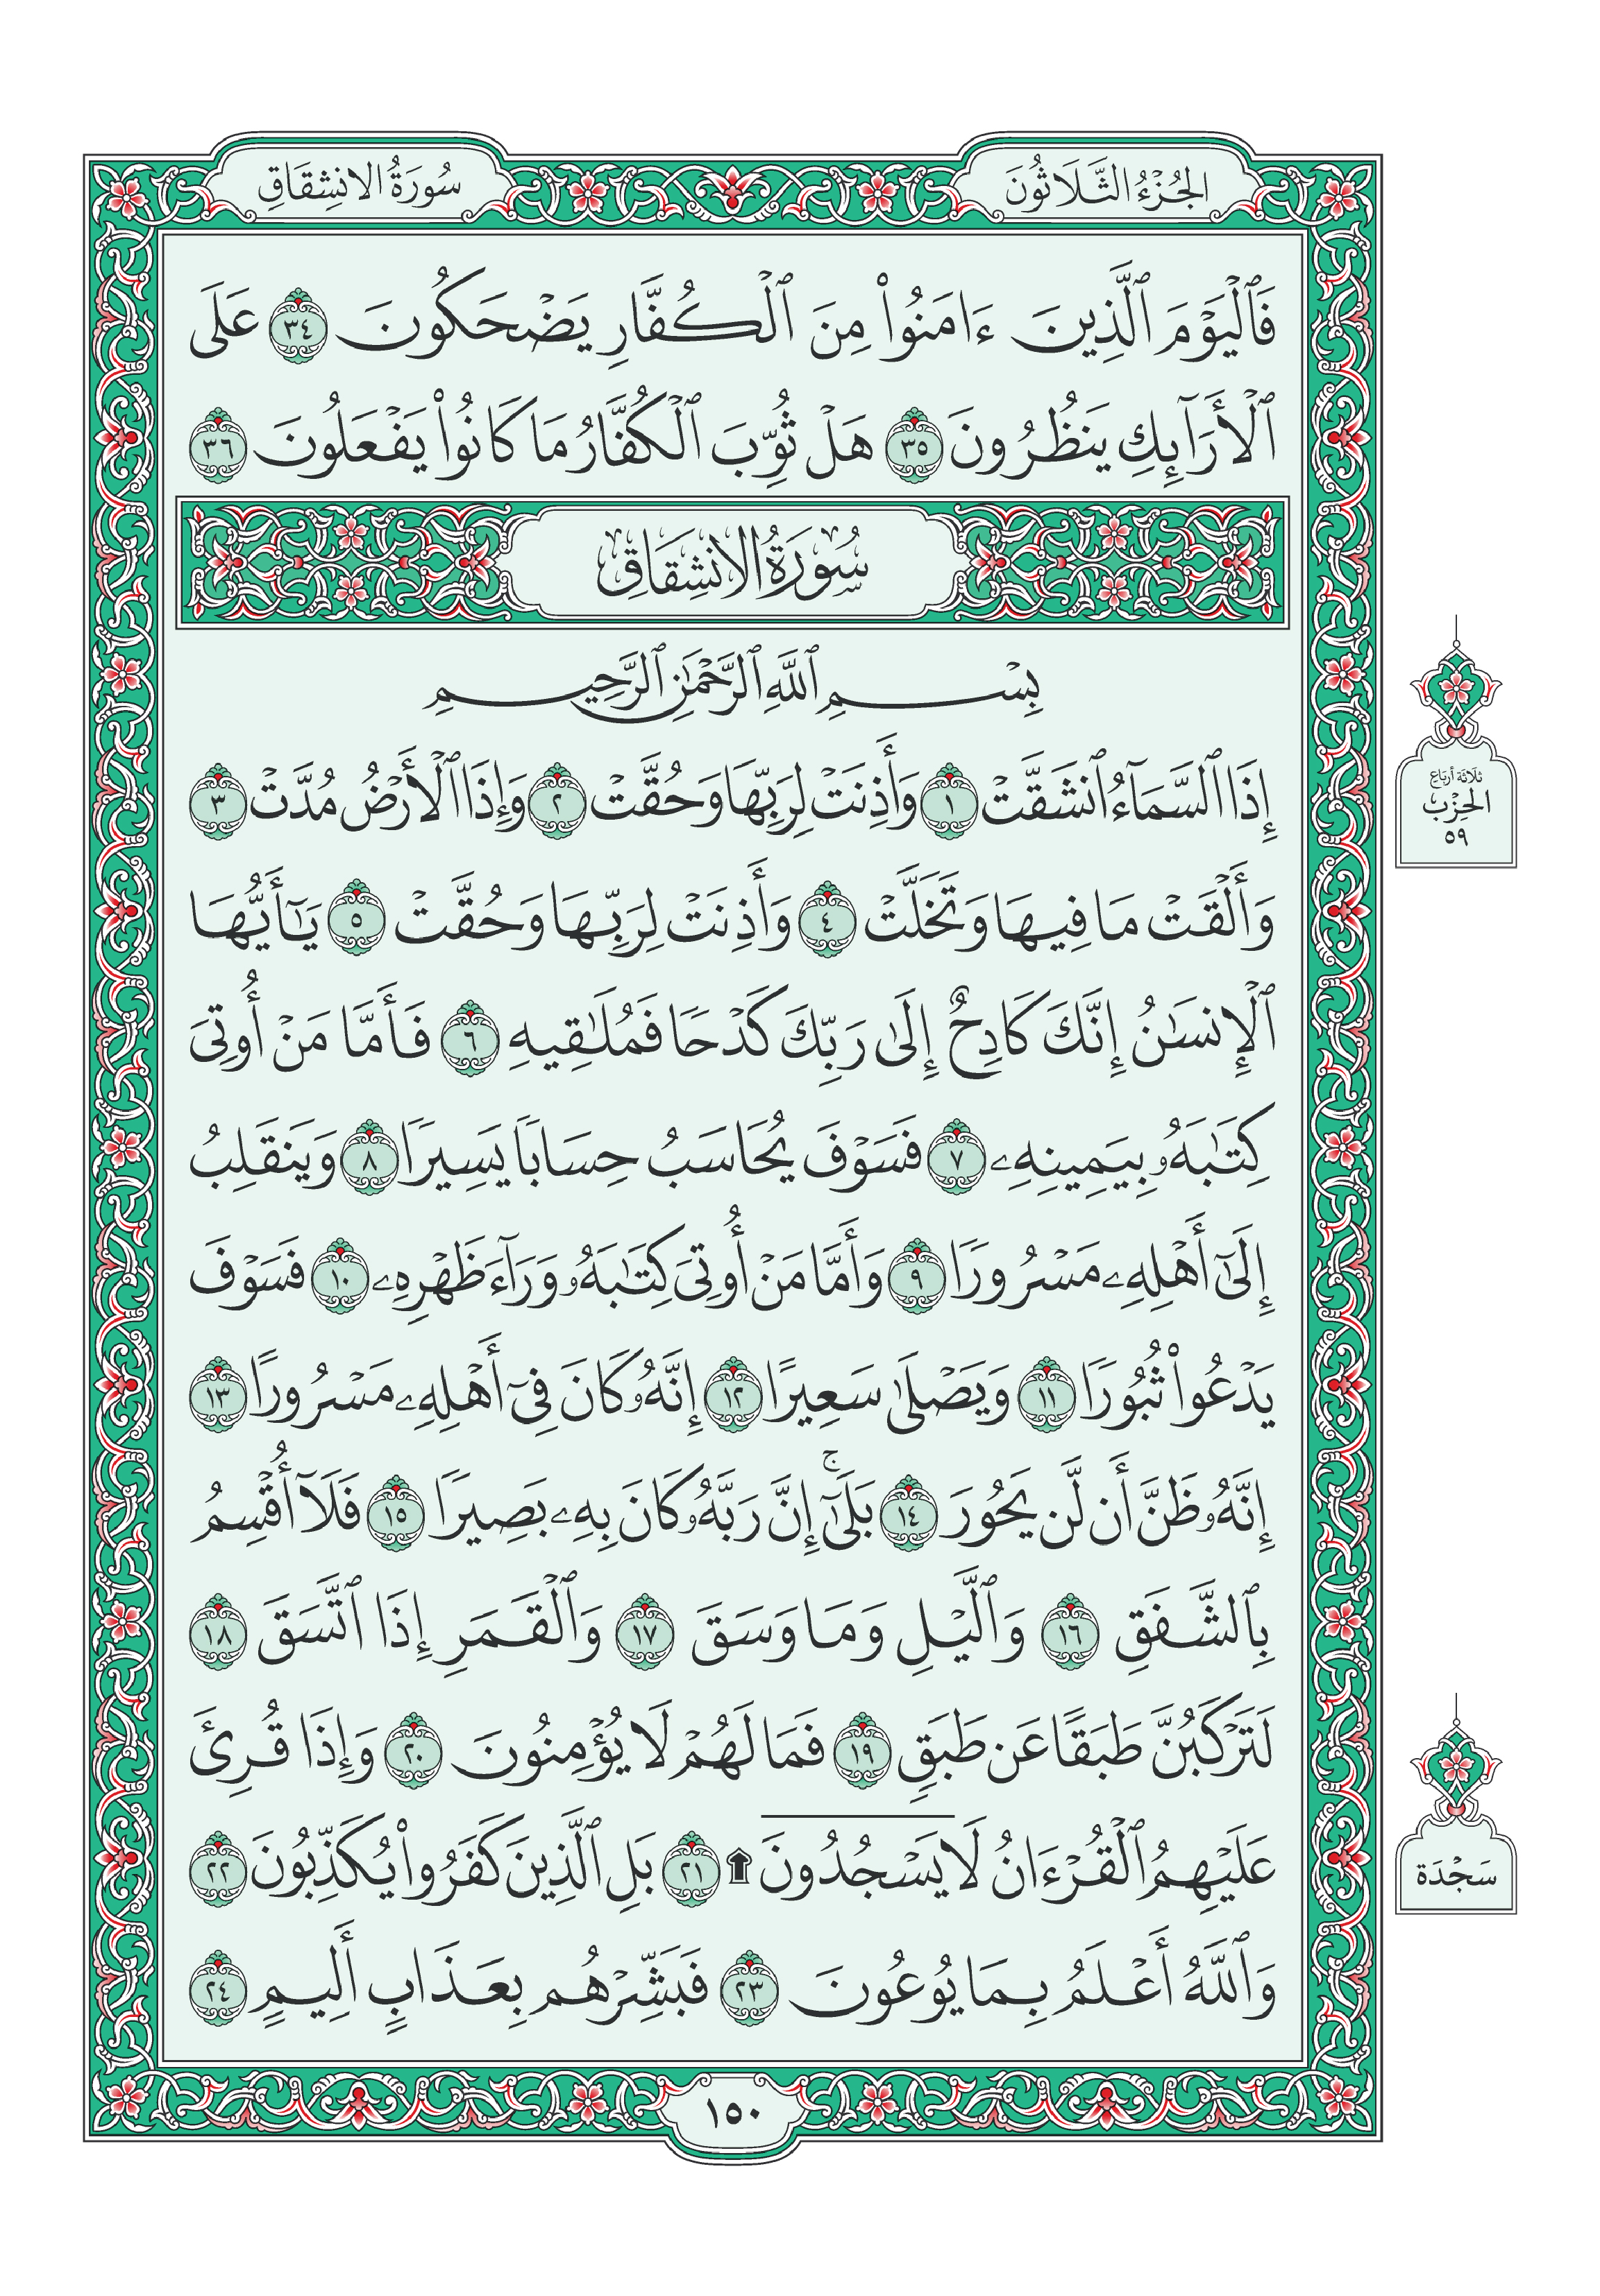 الجُزْءُ الثَّلَاثُونَ
سُورَةُ الانشِقَاقِ
فَٱلْيَوْمَ ٱلَّذِينَ ءَامَنُوا۟ مِنَ ٱلْكُفَّارِ يَضْحَكُونَ ٣٤ عَلَى
ٱلْأَرَآئِكِ يَنظُرُونَ ٣٥ هَلْ ثُوِّبَ ٱلْكُفَّارُ مَا كَانُوا۟ يَفْعَلُونَ ٣٦
سُورَةُ الانشِقَاقِ
بِسْمِ ٱللَّهِ ٱلرَّحْمَٰنِ ٱلرَّحِيمِ
إِذَا ٱلسَّمَآءُ ٱنشَقَّتْ ١ وَأَذِنَتْ لِرَبِّهَا وَحُقَّتْ ٢ وَإِذَا ٱلْأَرْضُ مُدَّتْ ٣
ثلَاثَة أربَاع
الحِزْب
٥٩
وَأَلْقَتْ مَا فِيهَا وَتَخَلَّتْ ٤ وَأَذِنَتْ لِرَبِّهَا وَحُقَّتْ ٥ يَٰٓأَيُّهَا
ٱلْإِنسَٰنُ إِنَّكَ كَادِحٌ إِلَىٰ رَبِّكَ كَدْحًا فَمُلَٰقِيهِ ٦ فَأَمَّا مَنْ أُوتِىَ
كِتَٰبَهُۥ بِيَمِينِهِۦ ٧ فَسَوْفَ يُحَاسَبُ حِسَابًا يَسِيرًا ٨ وَيَنقَلِبُ
إِلَىٰٓ أَهْلِهِۦ مَسْرُورًا ٩ وَأَمَّا مَنْ أُوتِىَ كِتَٰبَهُۥ وَرَآءَ ظَهْرِهِۦ ١٠ فَسَوْفَ
يَدْعُوا۟ ثُبُورًا ١١ وَيَصْلَىٰ سَعِيرًا ١٢ إِنَّهُۥ كَانَ فِىٓ أَهْلِهِۦ مَسْرُورًا ١٣
إِنَّهُۥ ظَنَّ أَن لَّن يَحُورَ ١٤ بَلَىٰٓۚ إِنَّ رَبَّهُۥ كَانَ بِهِۦ بَصِيرًا ١٥ فَلَآ أُقْسِمُ
بِٱلشَّفَقِ ١٦ وَٱلَّيْلِ وَمَا وَسَقَ ١٧ وَٱلْقَمَرِ إِذَا ٱتَّسَقَ ١٨
لَتَرْكَبُنَّ طَبَقًا عَن طَبَقٍ ١٩ فَمَا لَهُمْ لَا يُؤْمِنُونَ ٢٠ وَإِذَا قُرِئَ
عَلَيْهِمُ ٱلْقُرْءَانُ لَا يَسْجُدُونَ ۩ ٢١ بَلِ ٱلَّذِينَ كَفَرُوا۟ يُكَذِّبُونَ ٢٢
سَجْدَة
وَٱللَّهُ أَعْلَمُ بِمَا يُوعُونَ ٢٣ فَبَشِّرْهُم بِعَذَابٍ أَلِيمٍ ٢٤
١٥٠